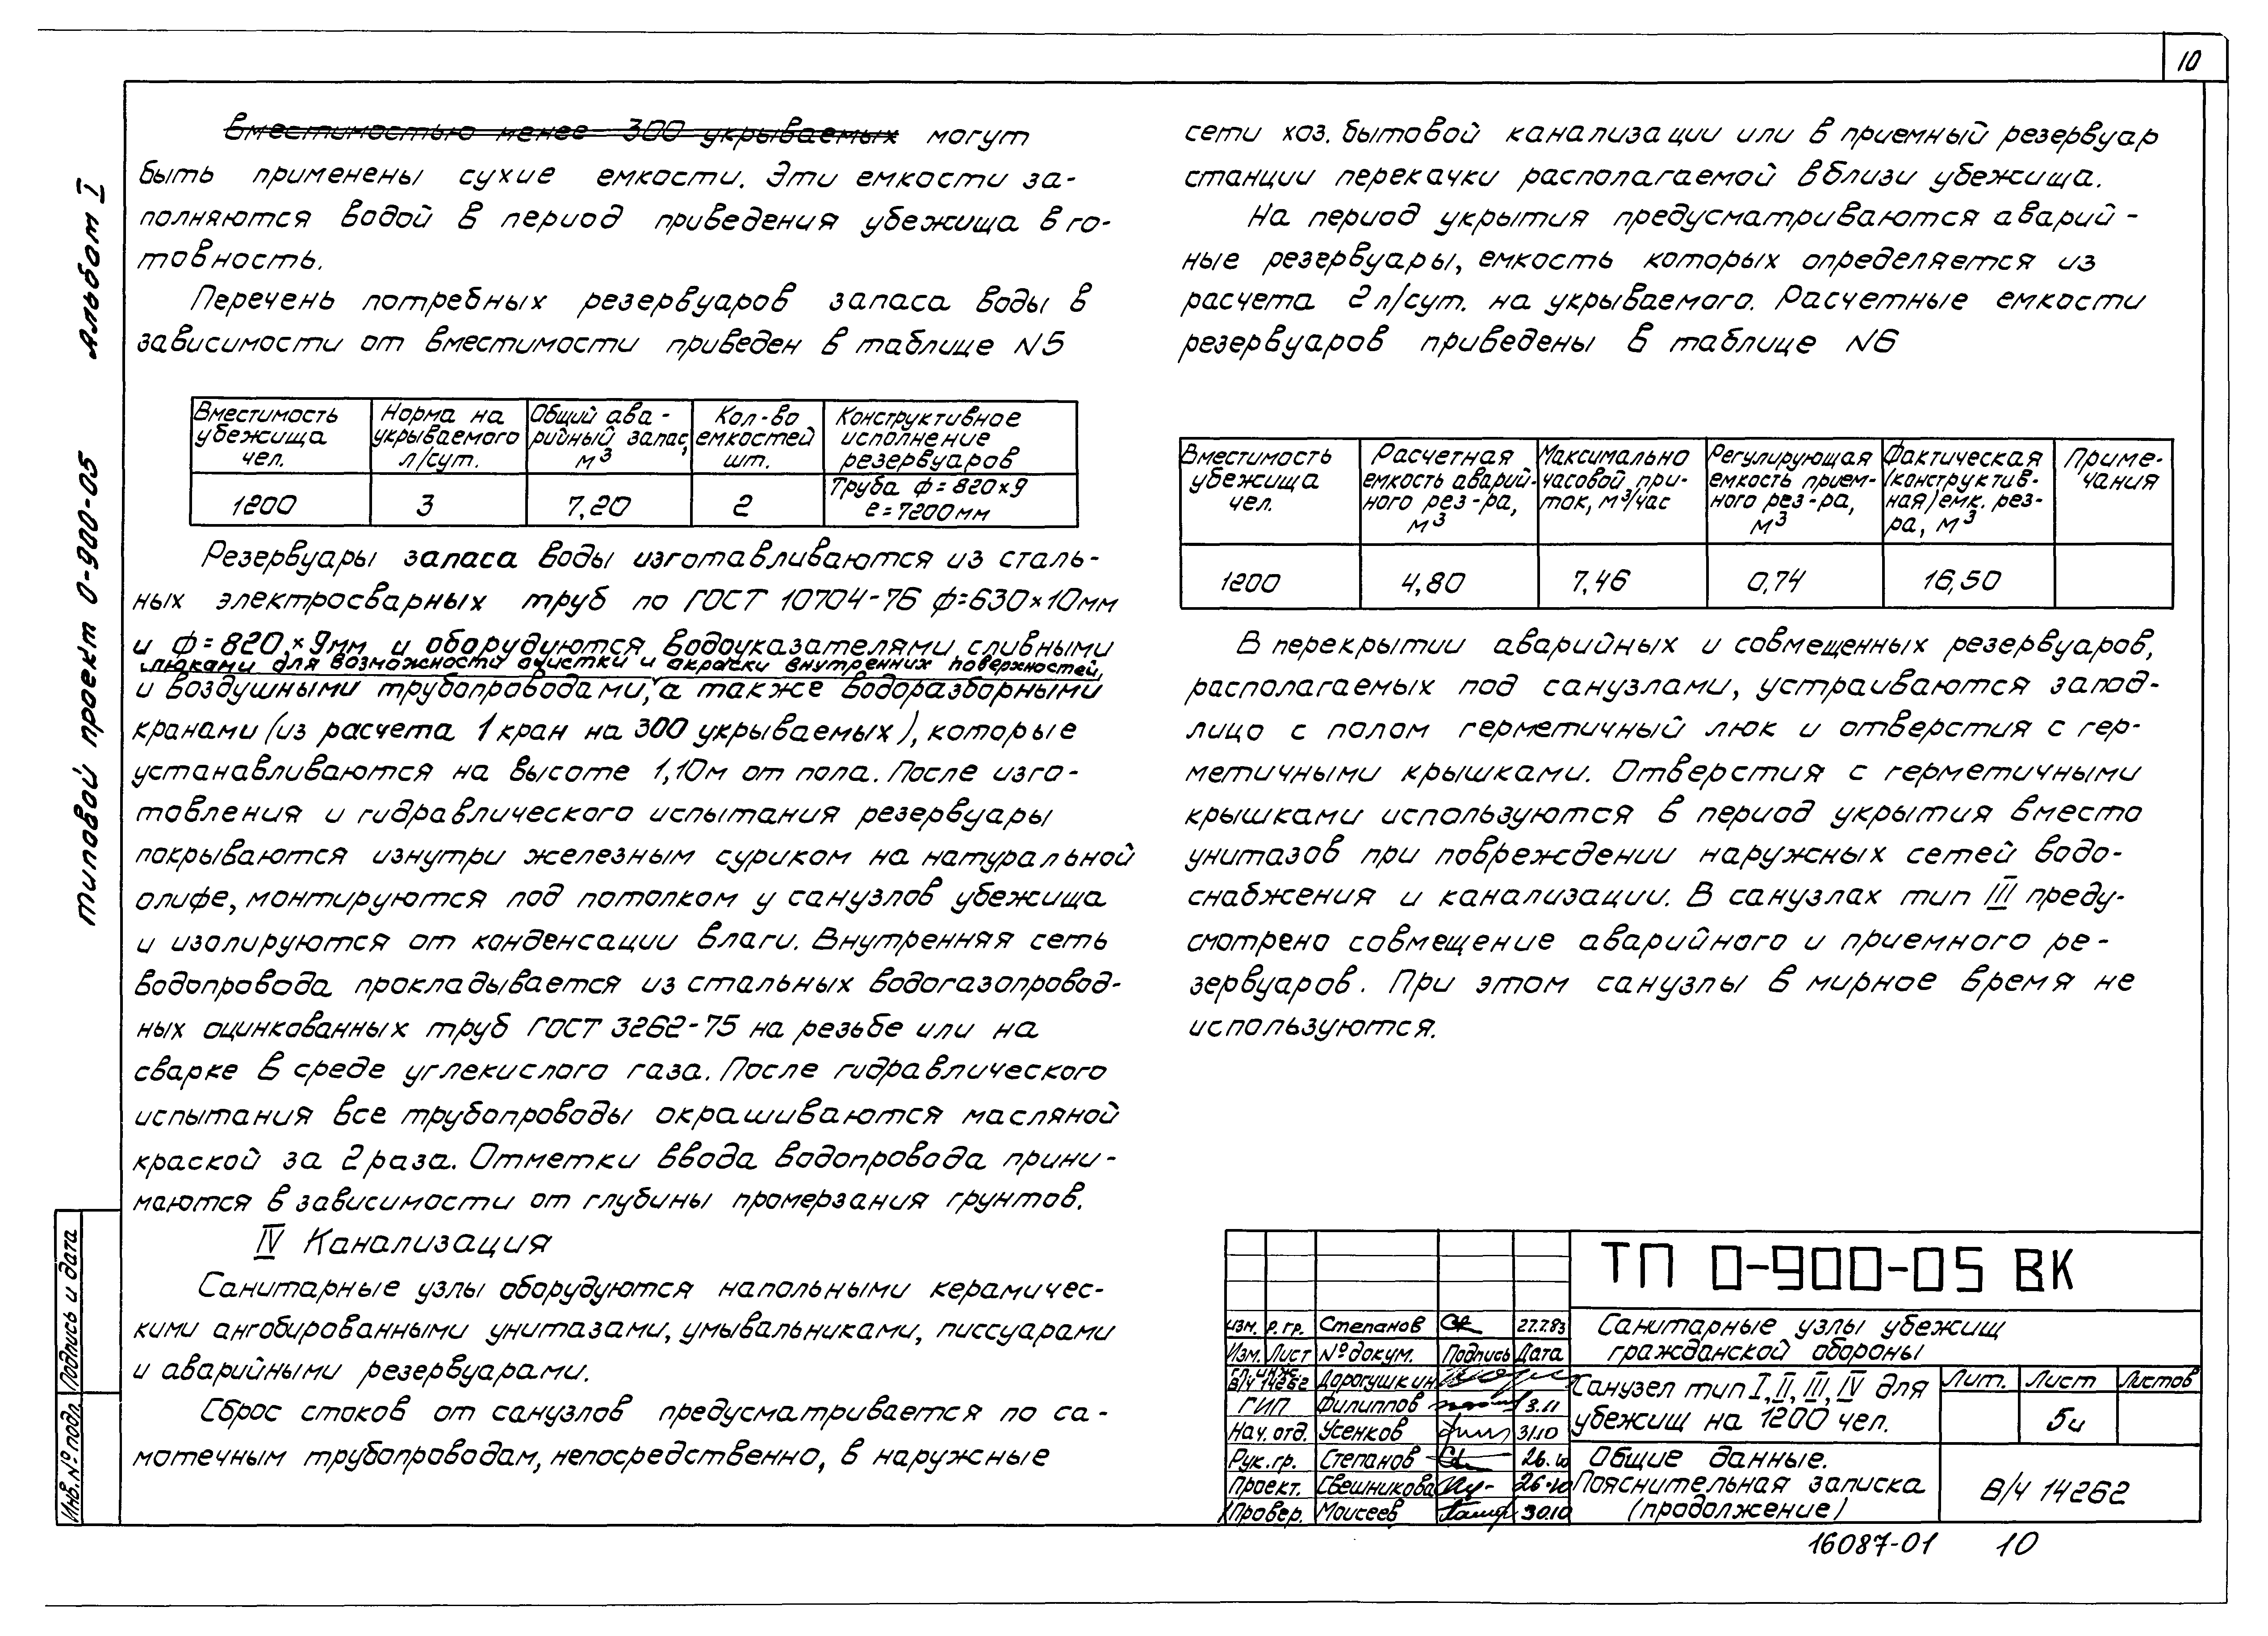 10
Альбом I
типовой проект 0-900-05
вместимостью менее 300 укрываемых могут
быть применены сухие емкости. Эти емкости за-
полняются водой в период приведения убежища в го-
товность.
Перечень потребных резервуаров запаса воды в
зависимости от вместимости приведен в таблице N5
Вместимость убежища чел.
Норма на укрываемого л/сут.
Общий ава-рийный запас, м³
Кол-во емкостей шт.
Конструктивное исполнение резервуаров
1200
3
7,20
2
Труба ф=820×9
е=7200мм
Резервуары запаса воды изготавливаются из сталь-
ных электросварных труб по ГОСТ 10704-76 ф=630×10мм
и ф=820×9мм и оборудуются водоуказателями, сливными
люками для возможности очистки и окраски внутренних поверхностей,
и воздушными трубопроводами, а также водоразборными
кранами (из расчета 1 кран на 300 укрываемых), которые
устанавливаются на высоте 1,10м от пола. После изго-
товления и гидравлического испытания резервуары
покрываются изнутри железным суриком на натуральной
олифе, монтируются под потолком у санузлов убежища
и изолируются от конденсации влаги. Внутренняя сеть
водопровода прокладывается из стальных водогазопровод-
ных оцинкованных труб ГОСТ 3262-75 на резьбе или на
сварке в среде углекислого газа. После гидравлического
испытания все трубопроводы окрашиваются масляной
краской за 2 раза. Отметки ввода водопровода прини-
маются в зависимости от глубины промерзания грунтов.
IV Канализация
Санитарные узлы оборудуются напольными керамичес-
кими ангобированными унитазами, умывальниками, писсуарами
и аварийными резервуарами.
Сброс стоков от санузлов предусматривается по са-
мотечным трубопроводам, непосредственно, в наружные
сети хоз. бытовой канализации или в приемный резервуар
станции перекачки располагаемой вблизи убежища.
На период укрытия предусматриваются аварий-
ные резервуары, емкость которых определяется из
расчета 2 л/сут. на укрываемого. Расчетные емкости
резервуаров приведены в таблице N6
Вместимость убежища чел.
Расчетная емкость аварий-ного рез-ра, м³
Максимально часовой при-ток, м³/час
Регулирующая емкость прием-ного рез-ра, м³
Фактическая /конструктив-ная/емк. рез-ра, м³
Приме-чания
1200
4,80
7,46
0,74
16,50
В перекрытии аварийных и совмещенных резервуаров,
располагаемых под санузлами, устраиваются запод-
лицо с полом герметичный люк и отверстия с гер-
метичными крышками. Отверстия с герметичными
крышками используются в период укрытия вместо
унитазов при повреждении наружных сетей водо-
снабжения и канализации. В санузлах тип III преду-
смотрено совмещение аварийного и приемного ре-
зервуаров. При этом санузлы в мирное время не
используются.
ТП 0-900-05 ВК
изм. р.гр. Степанов 27.7.83
Изм. Лист № докум. Подпись Дата
гл. инж. В/ч 14262 Дорогушкин
ГИП Филиппов 3.11
Нач. отд. Усенков 31.10
Рук. гр. Степанов 26.10
Проект. Свешникова 26.10
Провер. Моисеев 30.10
Санитарные узлы убежищ
гражданской обороны
Санузел тип I, II, III, IV для
убежищ на 1200 чел.
Лит. Лист Листов
5и
Общие данные.
Пояснительная записка
(продолжение)
В/ч 14262
Инв. № подл. Подпись и дата
16087-01 10